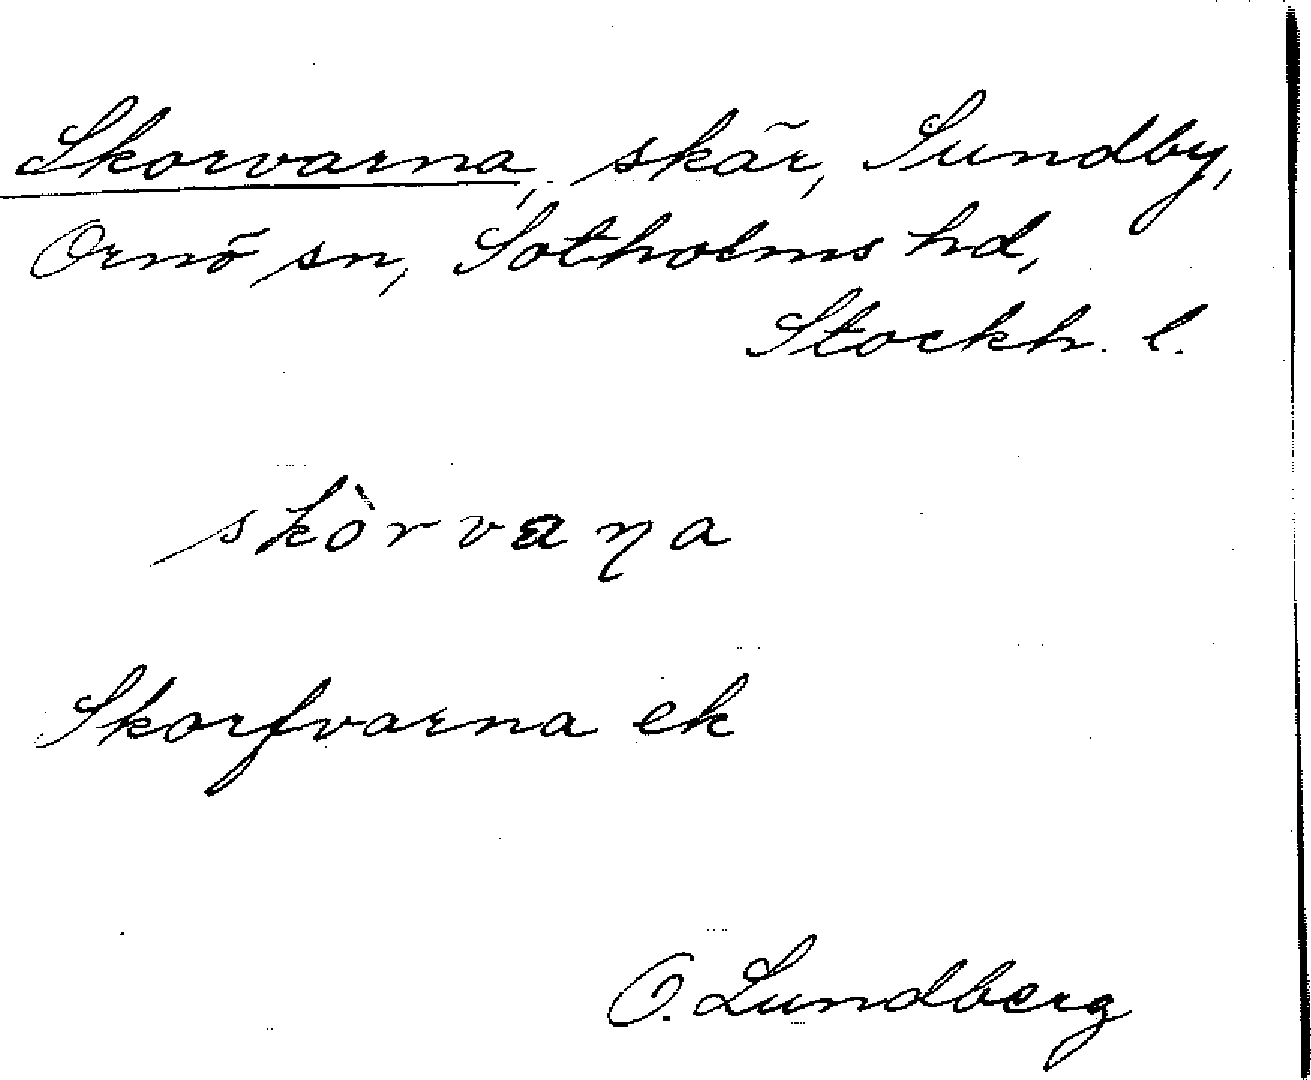 Skorvarna, skär, Sundby,
Ornö sn, Sotholms hd,
Stockh. l.
skòrvaɳa
Skorfvarna ek
O. Lundberg